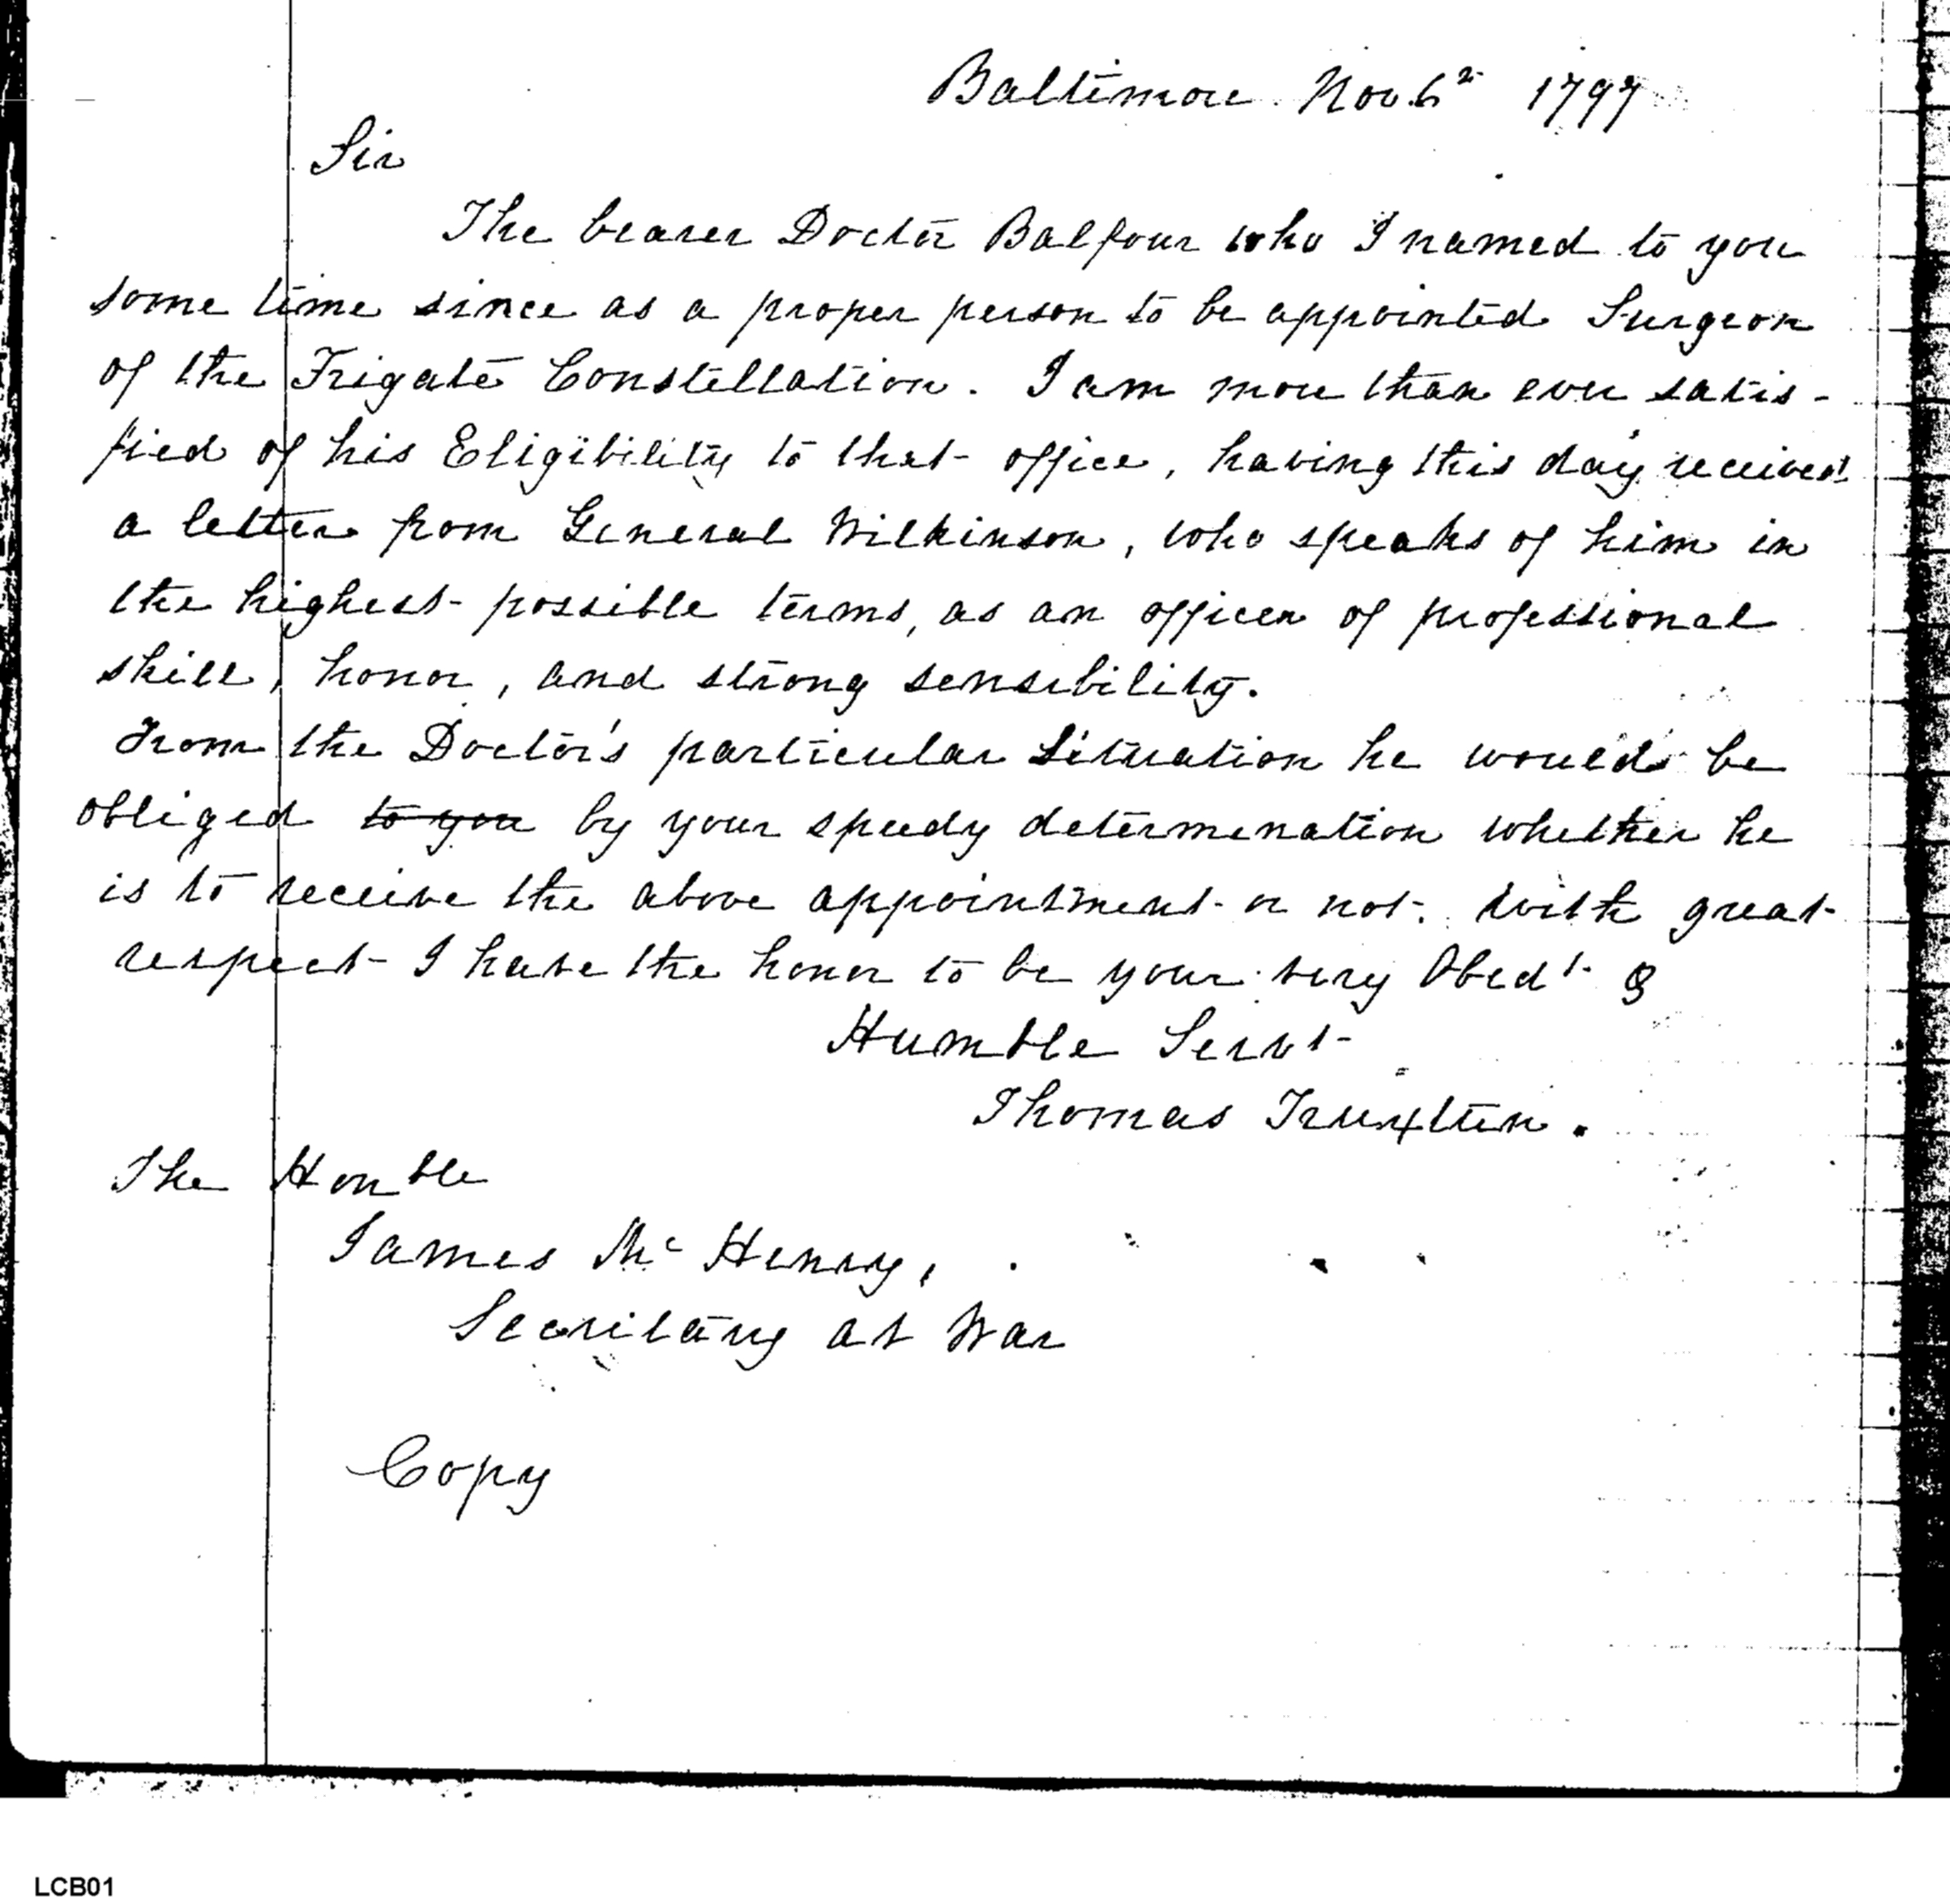 Baltimore Nov. 6th 1797
Sir
The bearer Doctor Balfour who I named to you
some time since as a proper person to be appointed Surgeon
of the Frigate Constellation. I am more than ever satis-
fied of his Eligibility to that office, having this day received
a letter from General Wilkinson, who speaks of him in
the highest possible terms, as an officer of professional
skill, honor, and strong sensibility.
From the Doctor's particular Situation he would be
obliged to you by your speedy determination whether he
is to receive the above appointment or not. With great
respect I have the honor to be your very Obed't &
Humble Servt
Thomas Truxtun.
The Honble
James McHenry,
Secretary at War
Copy
LCB01